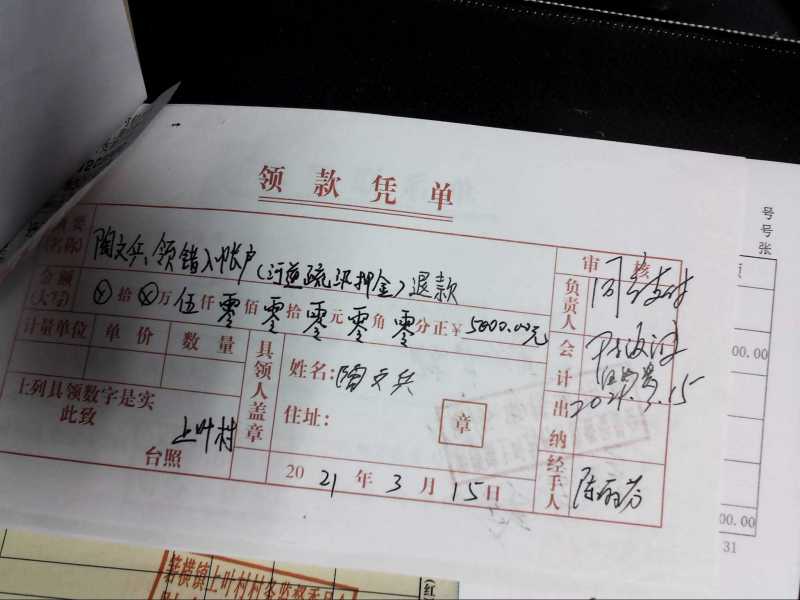 领款凭单
摘要
(名称)
陶文兵领错入帐户(河道疏浚押金)退款
金额
(大写)
ⓧ拾ⓧ万伍仟零佰零拾零元零角零分正¥5000.00元
计量单位 单价 数量
上列具领数字是实
此致
上叶村
台照
具领人盖章
姓名:陶文兵
住址:
章
2021年3月15日
审核
负责人
同意支付
会计
2021.3.15
出纳
经手人
陈丽芳
号
号
张
00.00
00.00
31
簪横镇上叶村村务监督委员会
(红